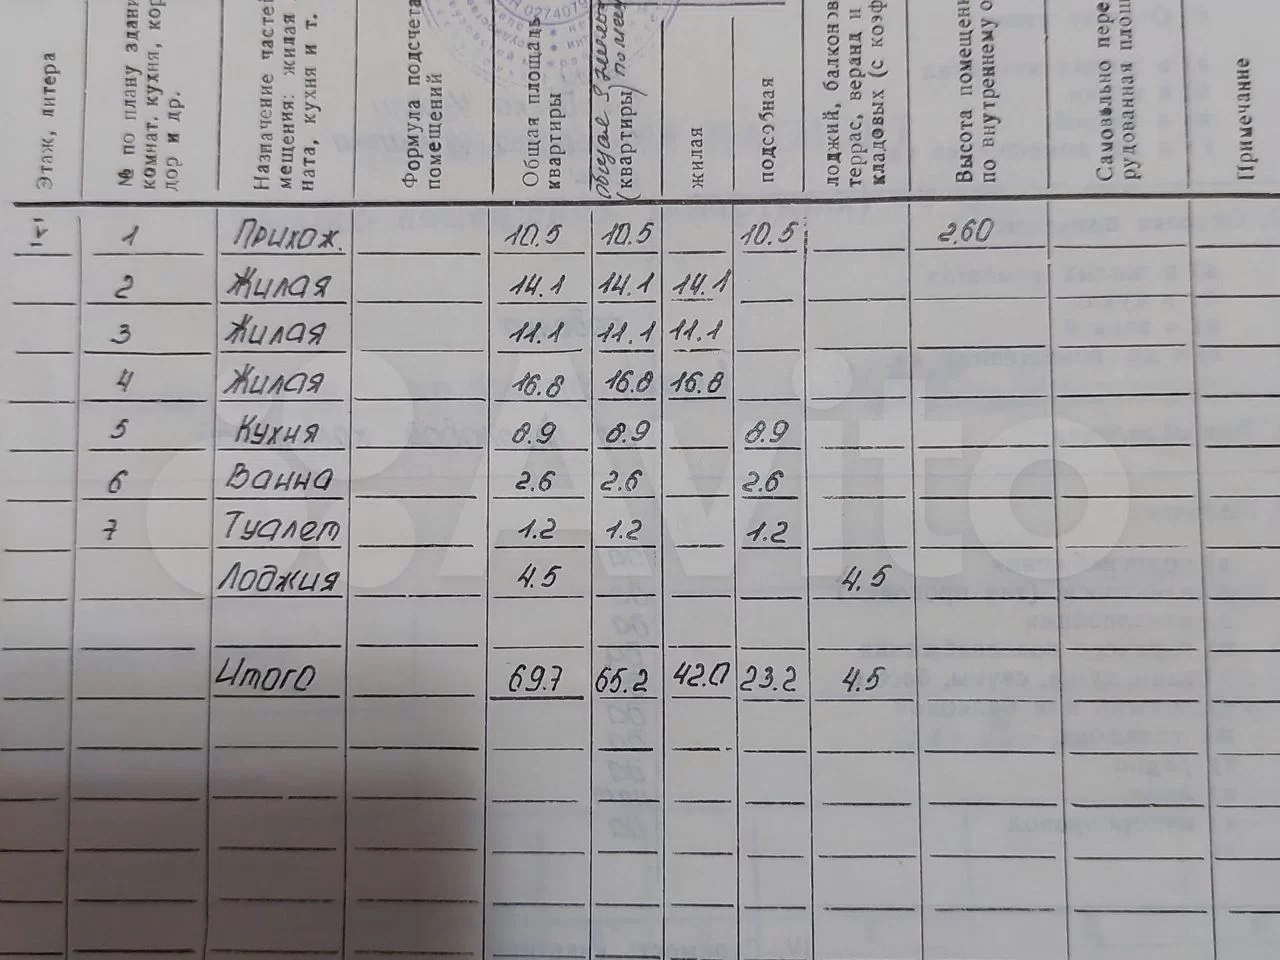 Этаж, литера
№ по плану здани
комнат, кухня, кор
дор и др.
Назначение частей
мещения: жилая
ната, кухня и т.
Формула подсчета
помещений
Общая площадь
квартиры
(квартиры)
жилая
подсобная
лоджий, балконов
террас, веранд и
кладовых (с коэф
Высота помещен
по внутреннему о
Самовольно пере
рудованная площ
Примечание
1 Прихож. 10.5 10.5 10.5 2.60
2 Жилая 14.1 14.1 14.1
3 Жилая 11.1 11.1 11.1
4 Жилая 16.8 16.8 16.8
5 Кухня 8.9 8.9 8.9
6 Ванна 2.6 2.6 2.6
7 Туалет 1.2 1.2 1.2
Лоджия 4.5 4.5
Итого 69.7 65.2 42.0 23.2 4.5
Avito